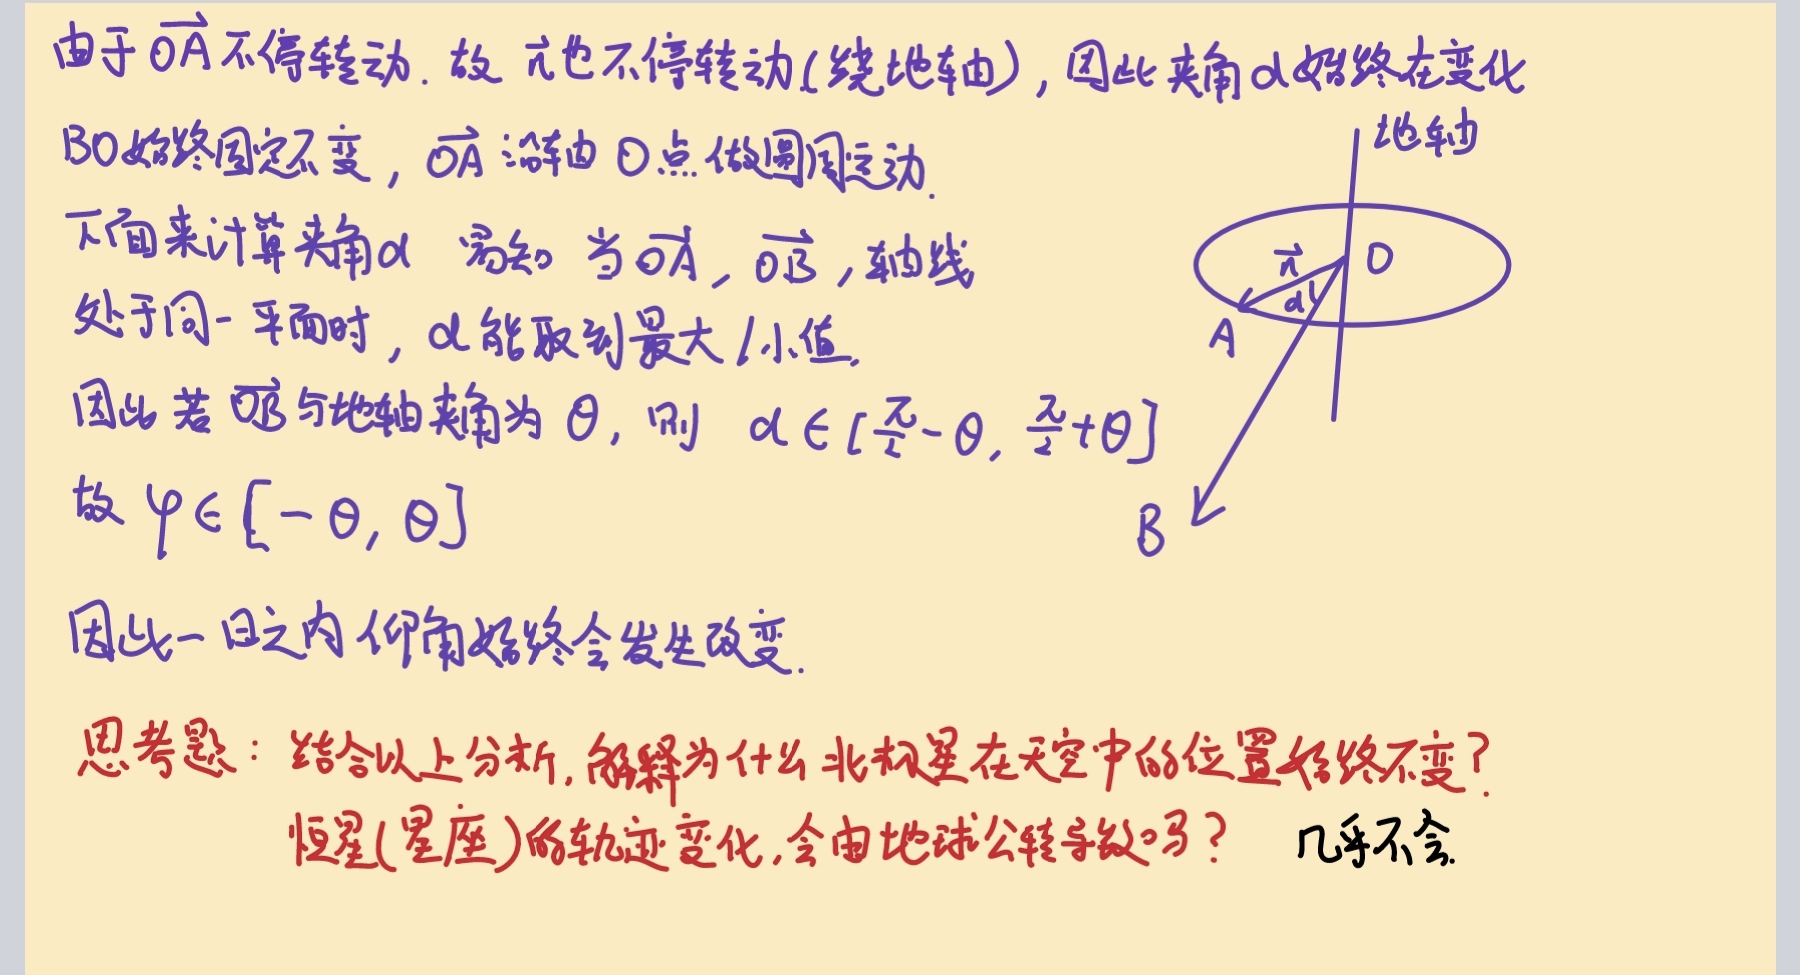 由于OA不停转动.故 n也不停转动(绕地轴),因此夹角α始终在变化
BO始终固定不变,OA沿轴O点做圆周运动.
下面来计算夹角α 易知 当OA,OB,轴线
处于同一平面时,α能取到最大/小值.
因此若OB与地轴夹角为θ,则 α∈[π/2-θ, π/2+θ]
故 φ∈[-θ,θ]
因此一日之内仰角始终会发生改变.
思考题:结合以上分析,解释为什么北极星在天空中的位置始终不变?
恒星(星座)的轨迹变化,会由地球公转导致吗? 几乎不会.
地轴
n
O
α
A
B